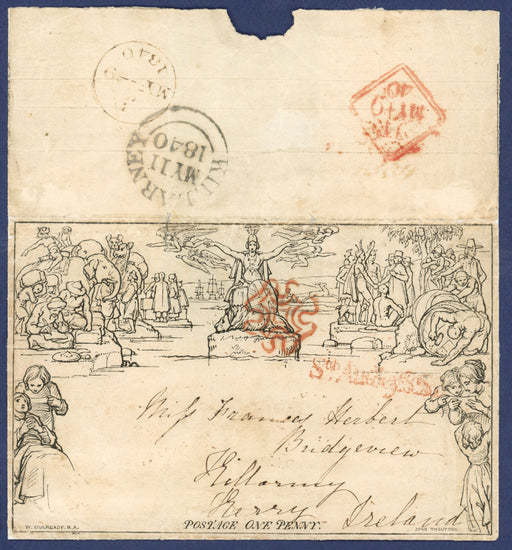 MY
1840
KILLARNEY
MY 11
1840
MY 9
40
Miss Frances Herbert
Bridgeview
Killarny
Kerry
Ireland
W. MULREADY, R.A.
POSTAGE ONE PENNY.
JOHN THOMPSON